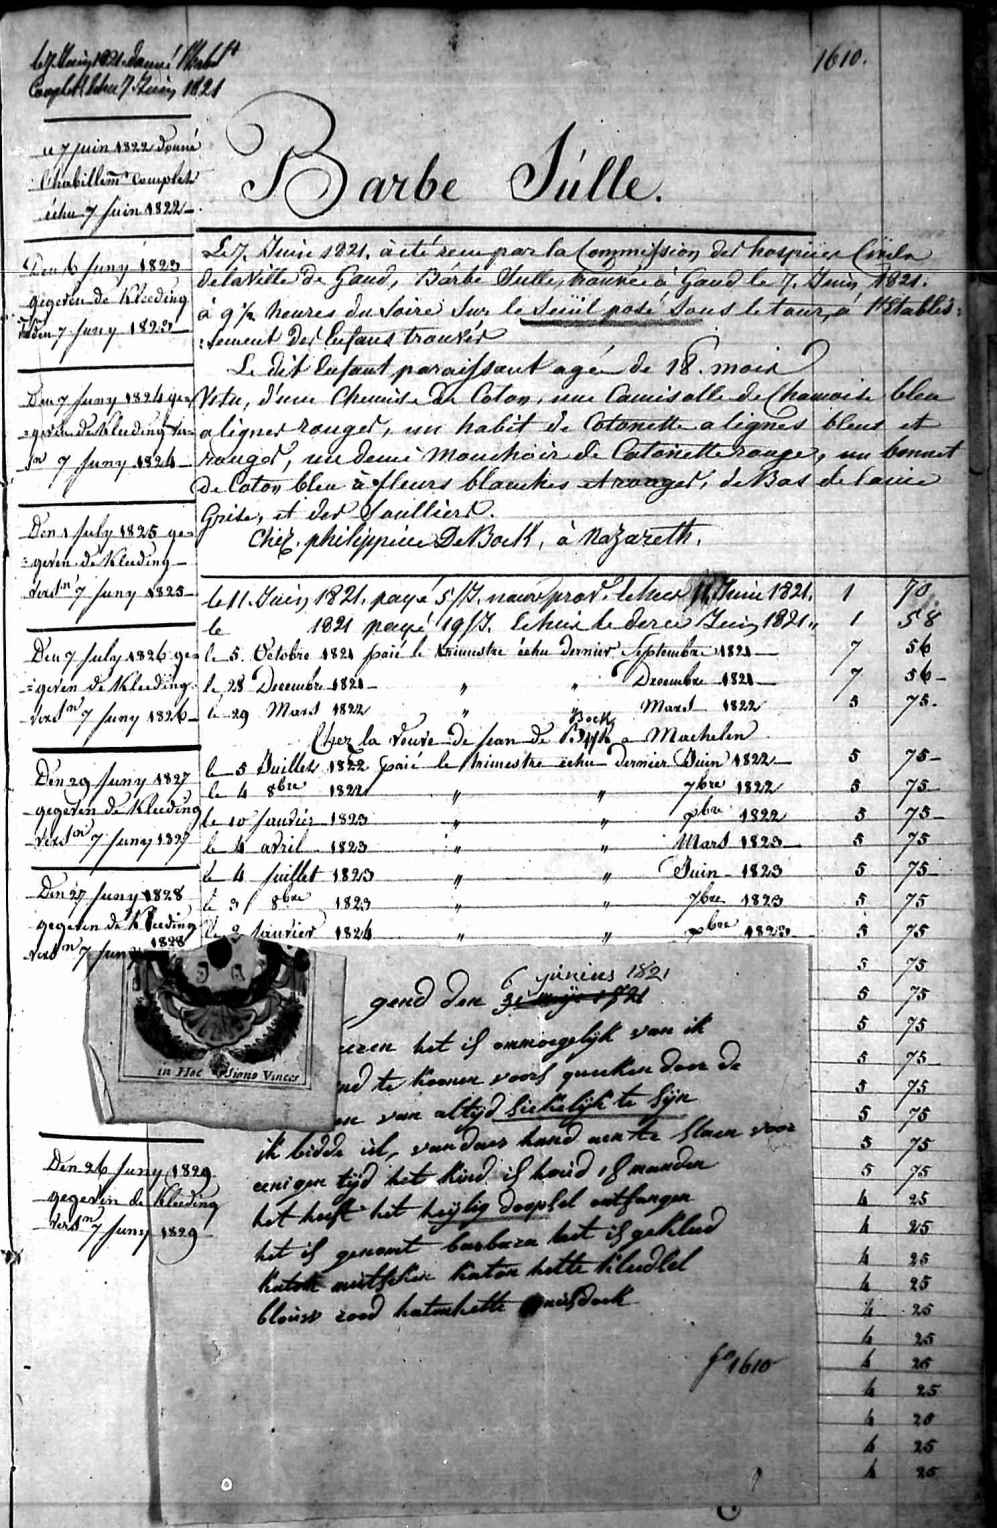 1610.
le 7 Juin 1821 donné l'habt
Complet échu 7 Juin 1821
le 7 juin 1822 donné
l'habillemt complet
échu 7 juin 1822
Den 6 Juny 1823
gegeven de kleeding
den 7 Juny 1823
Den 7 Juny 1824 ge=
=geven de kleeding ver=
sn 7 Juny 1824
Den 1 July 1825 ge=
=geven de kleeding
versn 7 Juny 1825
Den 7 July 1826 ge=
=geven de kleeding
versn 7 Juny 1826
Den 29 Juny 1827
gegeven de kleeding
versn 7 Juny 1827
Den 27 Juny 1828
gegeven de kleeding
versn 7 Juny 1828
Den 26 Juny 1829
gegeven de kleeding
versn 7 Juny 1829
Barbe Sulle.
Le 7. Juin 1821. à été reçu par la Commission des hospices Civils
de la Ville de Gand, Barbe Sulle, trouvée à Gand le 7. Juin 1821.
à 9½ heures du Soire Sur le Seuil posé Sous le tour, à l'Etablis=
=sement des Enfans trouvés
Le dit Enfant paraissant agé de 18. mois
Vetu, d'une Chemise de Coton, une Camisolle de Chamoise bleu
a lignes rouges, un habit de Cotonette a lignes bleus et
rouges, un demi Mouchoir de Cotonette rouge, un bonnet
de Coton bleu à fleurs blanches et rouges, de Bas de laine
Grise, et des Soulliers.
Chez. philippine DeBock, à Nazareth.
le 11 Juin 1821. payé 5/J. nour prov. échus 11 Juin 1821. 1 70
le 1821 payé 19/J. échus le dernier Juin 1821 " 1 58
le 5. Octobre 1821 paié le trimestre échu dernier Septembre 1821 7 56
le 28 Decembre 1821 " " Decembre 1821 7 56
le 29 Mars 1822 " Mars 1822 5 75.
Chez la veuve de Jean de Bock a Machelen
le 5 Juillet 1822 paié le trimestre échu dernier Juin 1822 5 75
le 4 8bre 1822 " " 7bre 1822 5 75
le 10 Janvier 1823 " " xbre 1822 5 75
le 4 avril 1823 " " Mars 1823 5 75
le 4 juillet 1823 " " Juin 1823 5 75
le 3 8bre 1823 " " 7bre 1823 5 75
le 2 Janvier 1824 " " xbre 1823 5 75
5 75
5 75
5 75
5 75
5 75
5 75
5 75
5 75
4 25
4 25
4 25
4 25
4 25
4 25
4 25
4 25
4 20
4 25
4 25
in Hoc Signo Vinces
6 junius 1821
gend den 3 meije 1821
het is onmoegelijk van ik
te konnen voors queeken door de
van altyd siekelijk te sijn
ik bidde ul, van daer hand aen te slaen voor
eenigen tijd het kind is houd 18 maenden
het heeft het heylig doopsel ontfangen
het is genoemt barbara het is gekleed
katon mutseken katon kette kleedsel
blouw rood katonette neusdoek
fo 1610